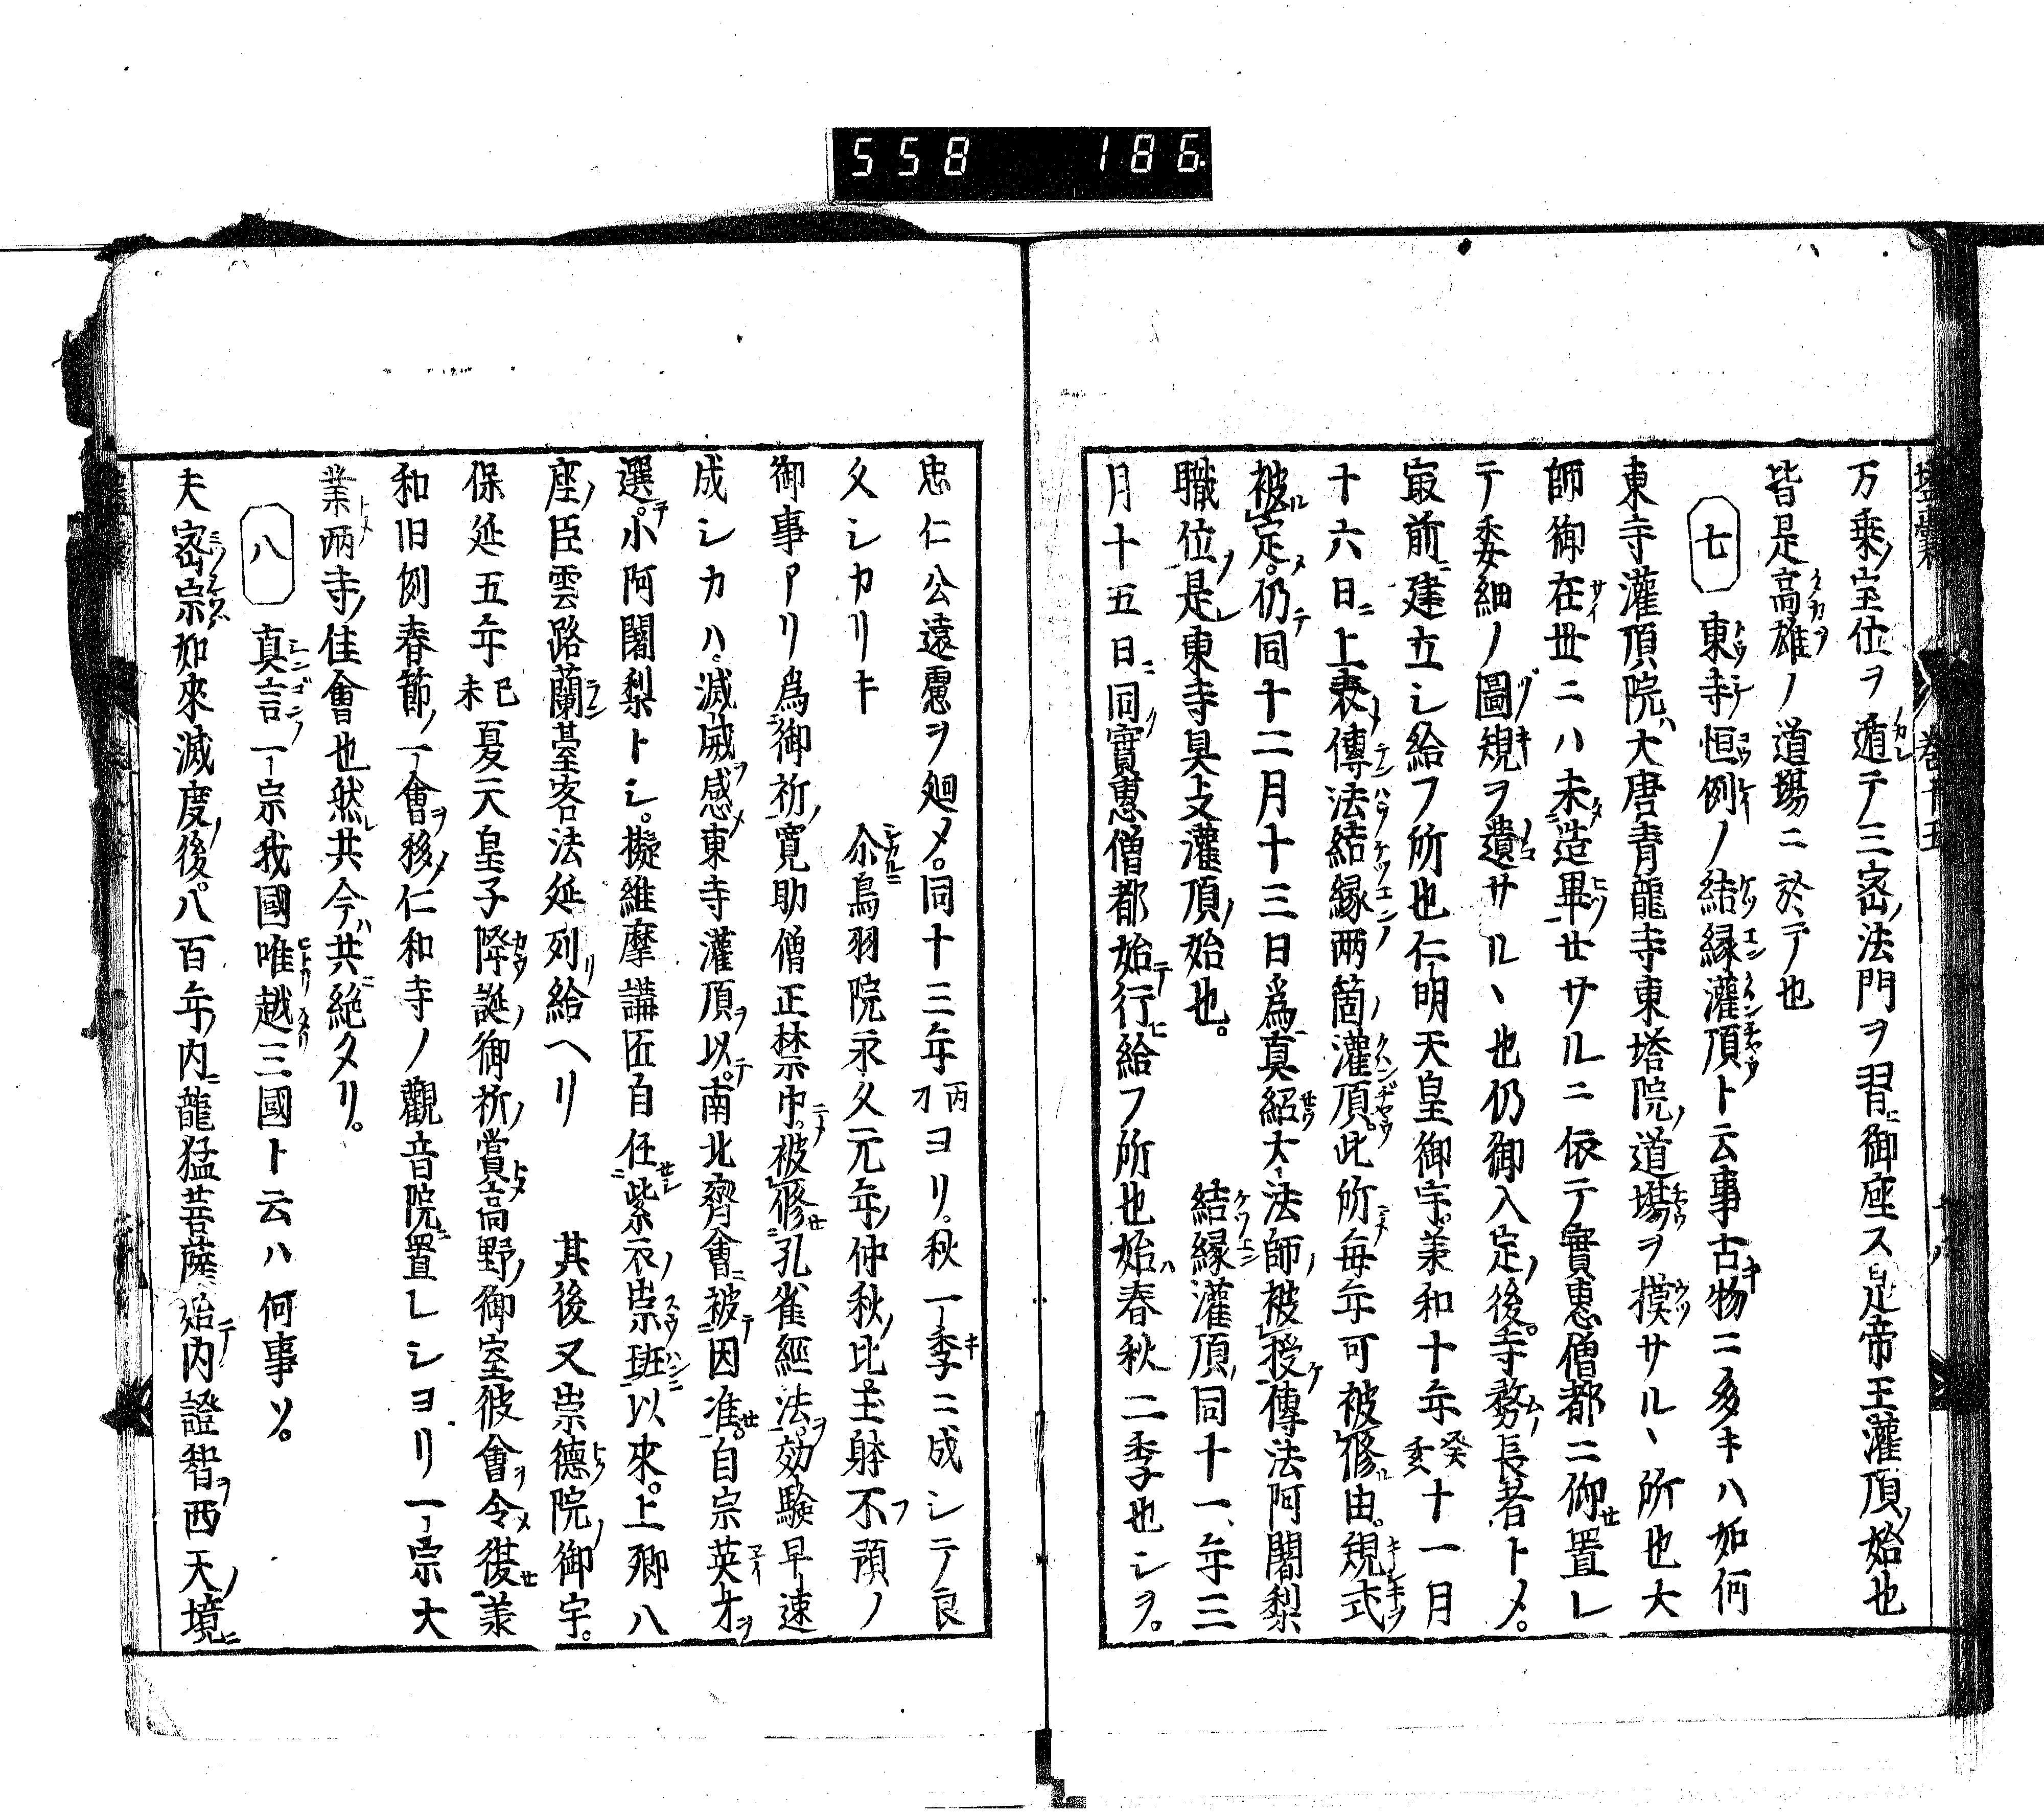 558 186.
万乗ノ宝位ヲ遁テ三密ノ法門ヲ習ニ御座ス是帝王灌頂ノ始也
皆是高雄ノ道場ニ於テ也
七 東寺恒例ノ結縁灌頂ト云事古物ニ多キハ如何
東寺灌頂院ハ大唐青龍寺東塔院ノ道場ヲ摸サルヽ所也大
師御在世ニハ未タ造畢セサルニ依テ實惠僧都ニ仰セ置レ
テ委細ノ圖規ヲ遺サルヽ也仍御入定ノ後寺務長者トメ
冣前ニ建立シ給フ所也仁明天皇御宇羕和十年癸亥十一月
十六日ニ上表メ傳法結縁両箇ノ灌頂此所ニメ毎年可被修ル由規式ヲ
被ル定メ仍テ同十二月十三日為真紹大法師ノ被授ケ傳法阿闍梨
職位ノ是レ東寺具支灌頂ノ始也 結縁灌頂ハ同十一年三
月十五日ニ同ク實惠僧都始テ行ヒ給フ所也始ハ春秋二季也シヲ
忠仁公遠慮ヲ廻メ同十三年丙刁ヨリ秋一季ニ成シテ良
久シカリキ 尒鳥羽院永久元年ノ仲秋ノ比主躰不豫ノ
御事アリ為御祈ノ寛助僧正禁中ニメ被修セ孔雀經法ヲ効驗早速
成シカハ滅感メ東寺灌頂ヲ以テ南北齊會ニ被テ因准セ自宗英才ヲ
選テ小阿闍梨トシ擬維摩講匠自任セシ紫衣ノ崇班ニ以來上卿八
座ノ臣雲路蘭臺客法延列リ給ヘリ 其後又崇德院ノ御宇
保延五年己未夏天皇子降誕ノ御祈ノ賞トメ高野ノ御室彼會ヲ令メ復セ羕
和旧例春節ノ一會ヲ移メ仁和寺ノ觀音院ニ置レシヨリ一宗大
業トメ兩寺ノ佳會也然レ共今ハ共ニ絶タリ
八 真言一宗我國唯越三國ト云ハ何事ソ
夫密宗如來滅度ノ後八百年ノ内ニ龍猛菩薩始テ内證智ヲ西天ノ境ニ